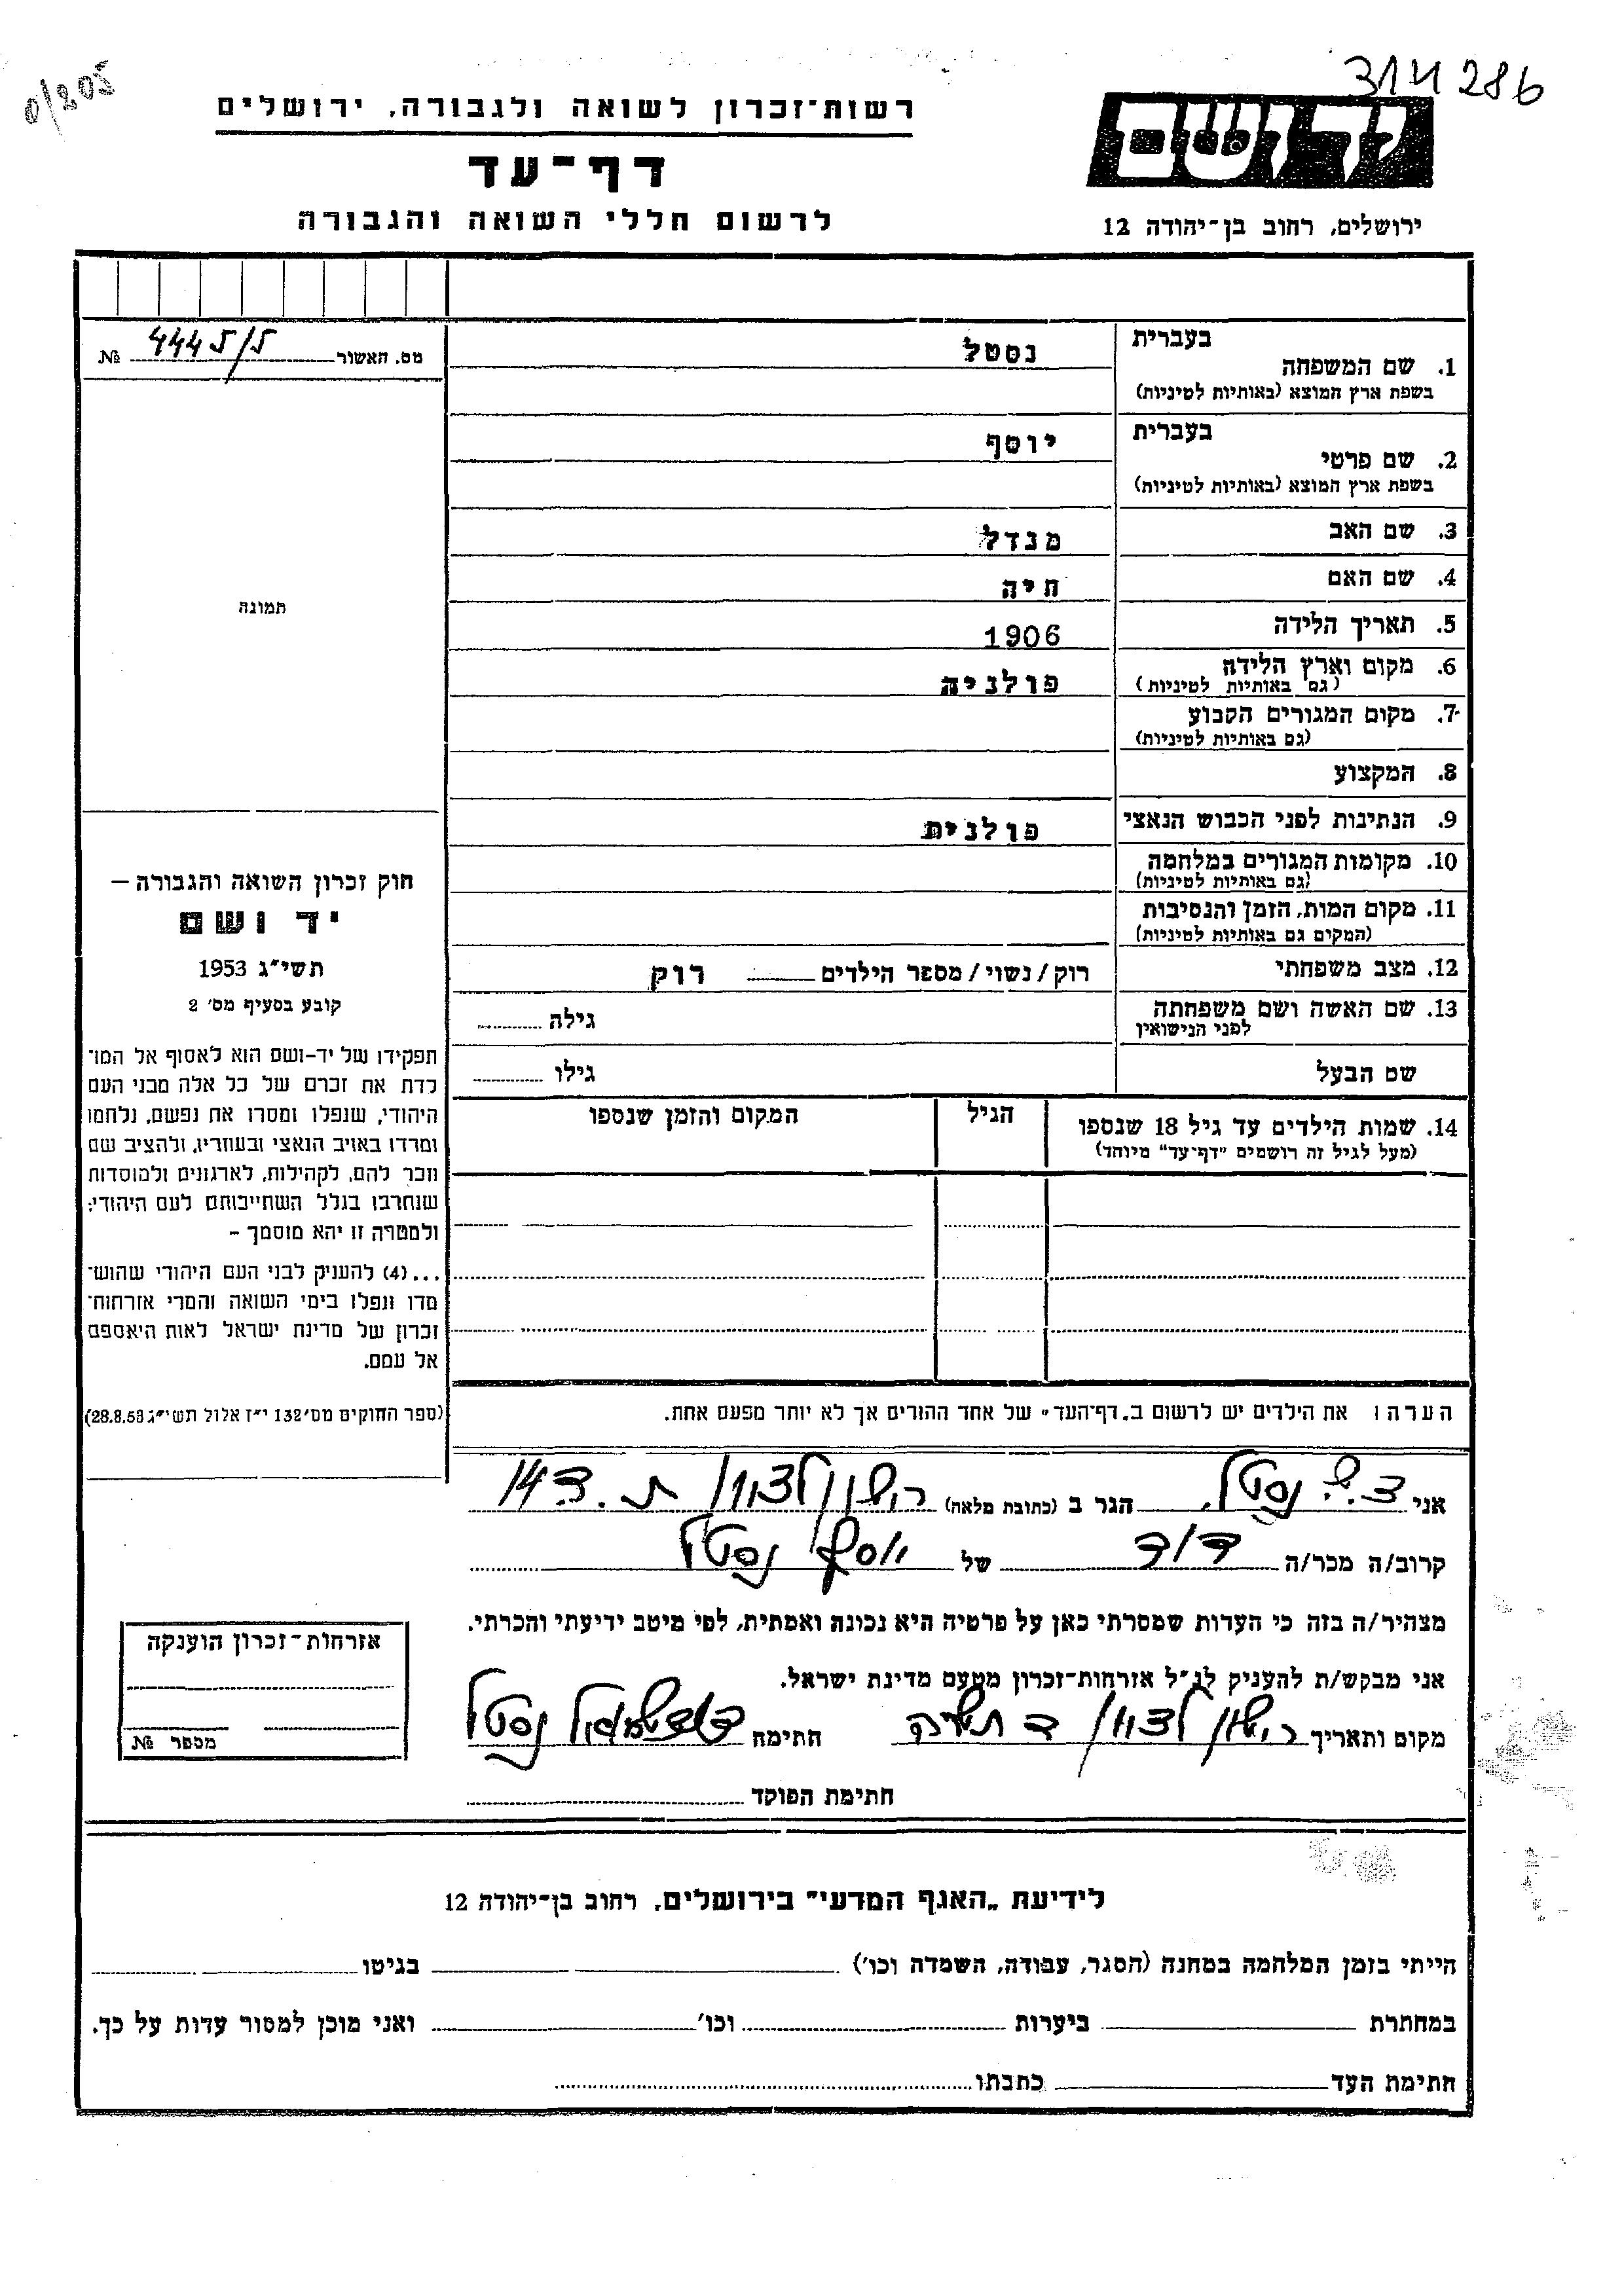 314286
0/205
רשות־זכרון לשואה ולגבורה, ירושלים
דף־עד
לרשום חללי השואה והגבורה
ידושם
ירושלים, רחוב בן־יהודה 12
מס. האשור 4445/5 №
תמונה
1. שם המשפחה
בעברית נסטל
בשפת ארץ המוצא (באותיות לטיניות)
2. שם פרטי
בעברית יוסף
בשפת ארץ המוצא (באותיות לטיניות)
3. שם האב מנדל
4. שם האם חיה
5. תאריך הלידה 1906
6. מקום וארץ הלידה פולניה
(גם באותיות לטיניות)
7. מקום המגורים הקבוע
(גם באותיות לטיניות)
8. המקצוע
9. הנתינות לפני הכבוש הנאצי פולנית
10. מקומות המגורים במלחמה
(גם באותיות לטיניות)
11. מקום המות, הזמן והנסיבות
(המקום גם באותיות לטיניות)
12. מצב משפחתי רוק/נשוי/מספר הילדים רוק
13. שם האשה ושם משפחתה גילה
לפני הנישואין
שם הבעל גילו
14. שמות הילדים עד גיל 18 שנספו הגיל המקום והזמן שנספו
(מעל לגיל זה רושמים "דף־עד" מיוחד)
חוק זכרון השואה והגבורה –
יד ושם
תשי"ג 1953
קובע בסעיף מס' 2
תפקידו של יד-ושם הוא לאסוף אל המו־
לדת את זכרם של כל אלה מבני העם
היהודי, שנפלו ומסרו את נפשם, נלחמו
ומרדו באויב הנאצי ובעוזריו, ולהציב שם
וזכר להם, לקהילות, לארגונים ולמוסדות
שנחרבו בגלל השתייכותם לעם היהודי;
ולמטרה זו יהא מוסמך –
...(4) להעניק לבני העם היהודי שהוש־
מדו ונפלו בימי השואה והמרי אזרחות־
זכרון של מדינת ישראל לאות היאספם
אל עמם.
(ספר החוקים מס' 132 י"ז אלול תשי"ג 28.8.53)
הערה: את הילדים יש לרשום ב"דף־העד" של אחד ההורים אך לא יותר מפעם אחת.
אני ד.ש. נסטל הגר ב (כתובת מלאה) ראשון לציון ת.ד. 14
קרוב/ה מכר/ה דוד של יוסף נסטל
מצהיר/ה בזה כי העדות שמסרתי כאן על פרטיה היא נכונה ואמתית, לפי מיטב ידיעתי והכרתי.
אני מבקש/ת להעניק לנ"ל אזרחות־זכרון מטעם מדינת ישראל.
מקום ותאריך ראשון לציון חתימה נסטל
חתימת הפוקד
אזרחות־זכרון הוענקה
מספר №
לידיעת „האגף המדעי" בירושלים, רחוב בן־יהודה 12
הייתי בזמן המלחמה במחנה (הסגר, עבודה, השמדה וכו') בגיטו
במחתרת ביערות וכו' ואני מוכן למסור עדות על כך.
חתימת העד כתבתו